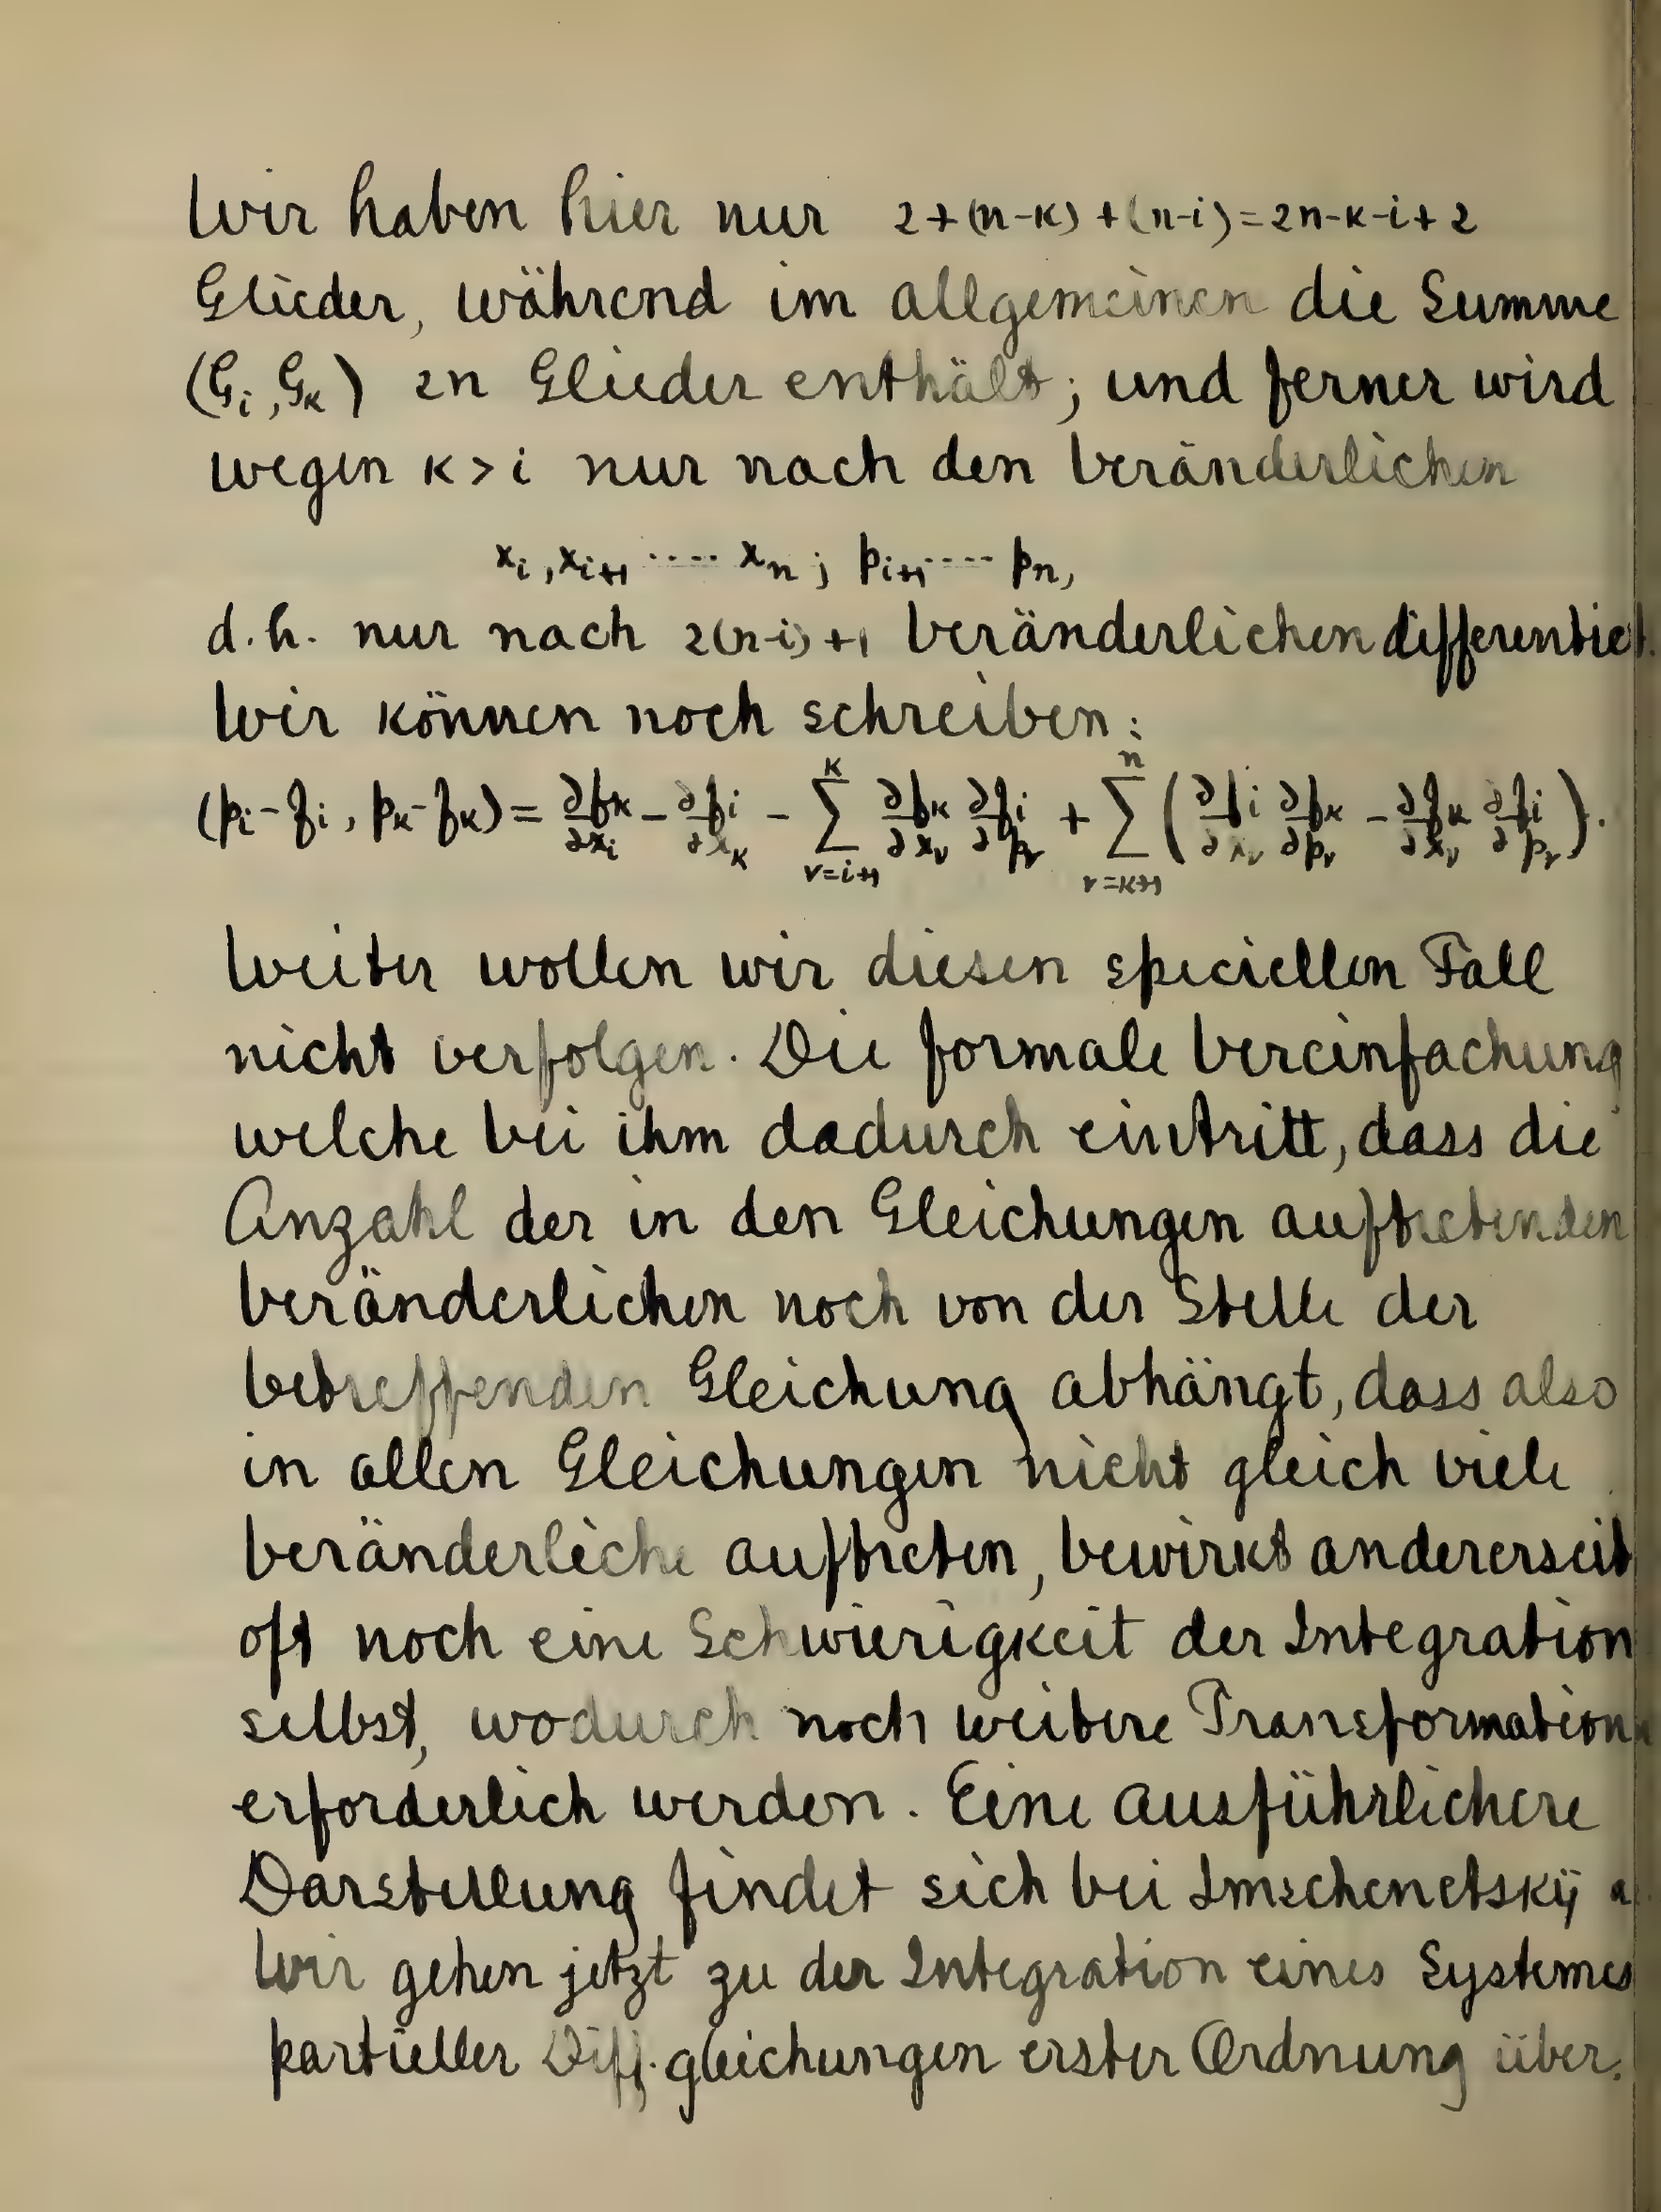 Wir haben hier nur 2+(n-k)+(n-i)=2n-k-i+2
Glieder, während im allgemeinen die Summe
(G_i, G_k) 2n Glieder enthält; und ferner wird
wegen k>i nur nach den Veränderlichen
x_i, x_{i+1} ···· x_n ; p_{i+1} ···· p_n,
d.h. nur nach 2(n-i)+1 Veränderlichen differentiert.
Wir können noch schreiben:
(p_i-f_i, p_k-f_k) = ∂f_k/∂x_i - ∂f_i/∂x_k - ∑_{ν=i+1}^{k} ∂f_k/∂x_ν ∂f_i/∂p_ν + ∑_{ν=k+1}^{n} (∂f_i/∂x_ν ∂f_k/∂p_ν - ∂f_k/∂x_ν ∂f_i/∂p_ν).
Weiter wollen wir diesen speciellen Fall
nicht verfolgen. Die formale Vereinfachung,
welche bei ihm dadurch eintritt, dass die
Anzahl der in den Gleichungen auftretenden
Veränderlichen noch von der Stelle der
betreffenden Gleichung abhängt, dass also
in allen Gleichungen nicht gleich viele
Veränderliche auftreten, bewirkt andererseit
oft noch eine Schwierigkeit der Integration
selbst, wodurch noch weitere Transformationen
erforderlich werden. Eine ausführlichere
Darstellung findet sich bei Imschenetskÿ
Wir gehen jetzt zu der Integration eines Systemes
partieller Diff.gleichungen erster Ordnung über.